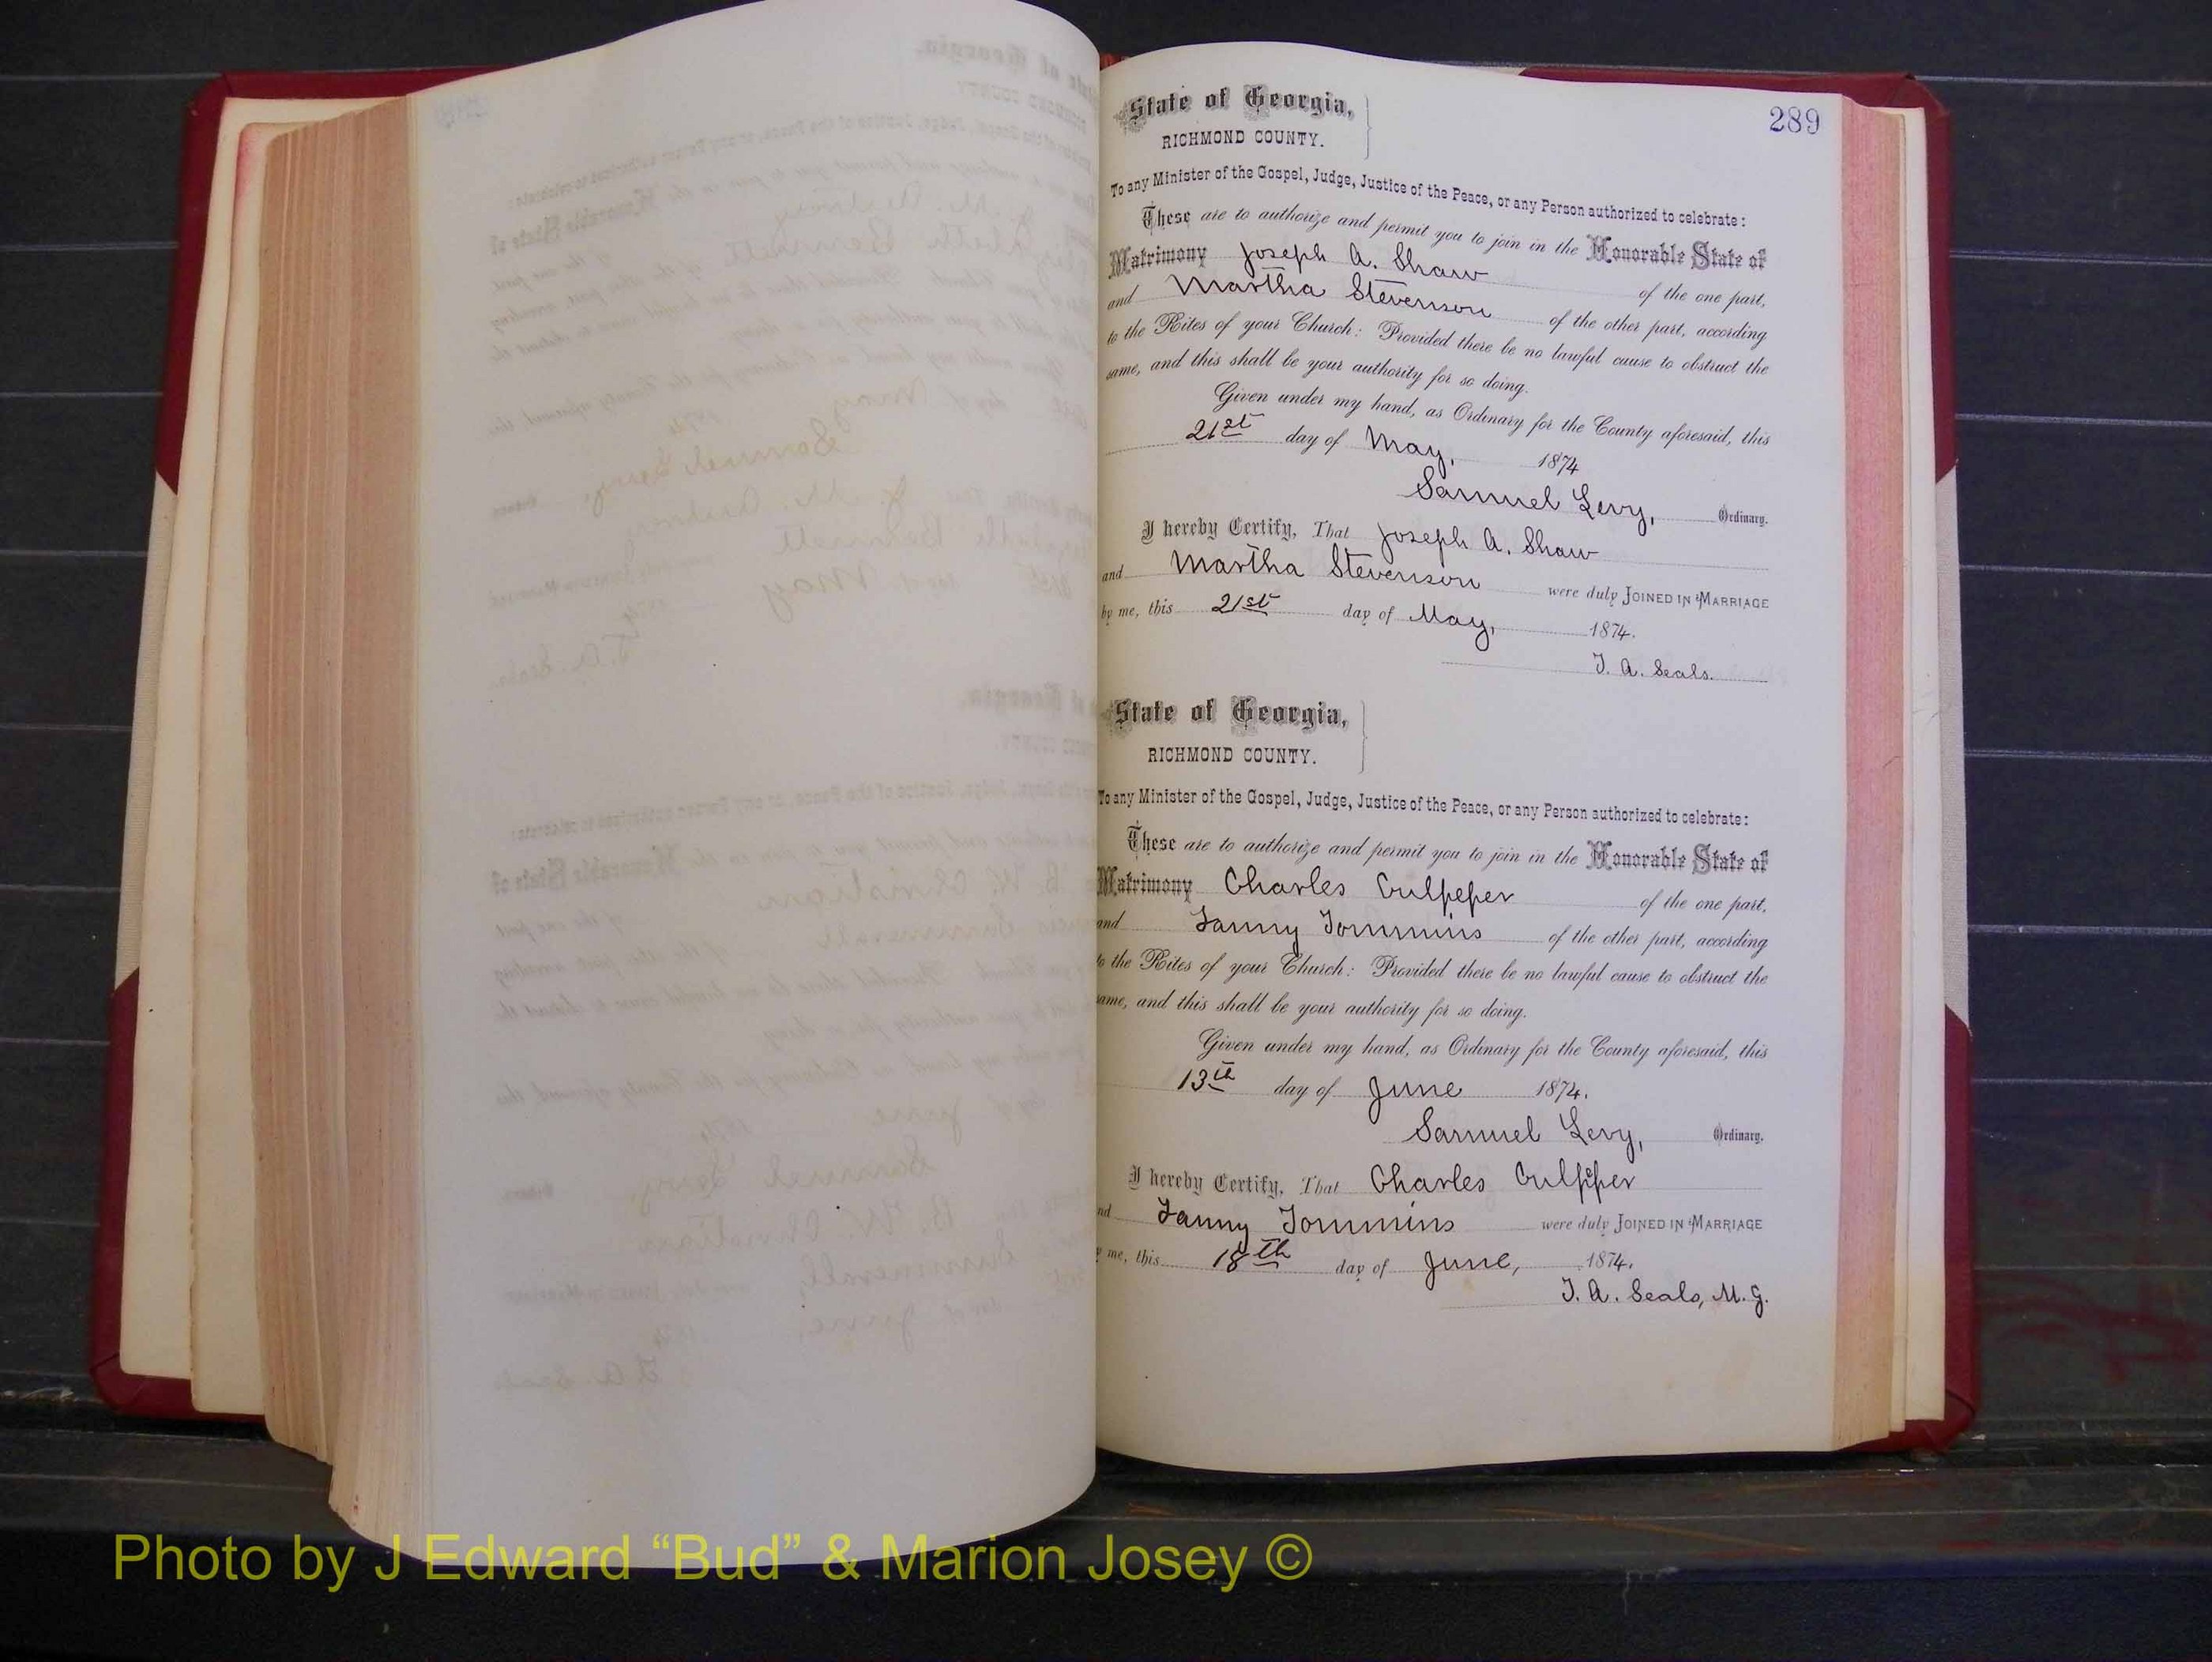 289
State of Georgia,
RICHMOND COUNTY.
To any Minister of the Gospel, Judge, Justice of the Peace, or any Person authorized to celebrate:
These are to authorize and permit you to join in the Honorable State of
Matrimony Joseph A. Shaw of the one part,
and Martha Stevenson of the other part, according
to the Rites of your Church: Provided there be no lawful cause to obstruct the
same, and this shall be your authority for so doing.
Given under my hand, as Ordinary for the County aforesaid, this
21st day of May, 1874
Samuel Levy, Ordinary.
I hereby Certify, That Joseph A. Shaw
and Martha Stevenson were duly JOINED IN MARRIAGE
by me, this 21st day of May, 1874.
T. A. Seals.
State of Georgia,
RICHMOND COUNTY.
To any Minister of the Gospel, Judge, Justice of the Peace, or any Person authorized to celebrate:
These are to authorize and permit you to join in the Honorable State of
Matrimony Charles Culpeper of the one part,
and Fanny Tommins of the other part, according
to the Rites of your Church: Provided there be no lawful cause to obstruct the
same, and this shall be your authority for so doing.
Given under my hand, as Ordinary for the County aforesaid, this
13th day of June 1874.
Samuel Levy, Ordinary.
I hereby Certify, That Charles Culpeper
nd Fanny Tommins were duly JOINED IN MARRIAGE
y me, this 18th day of June, 1874.
T. A. Seals, M. G.
Photo by J Edward “Bud” & Marion Josey ©